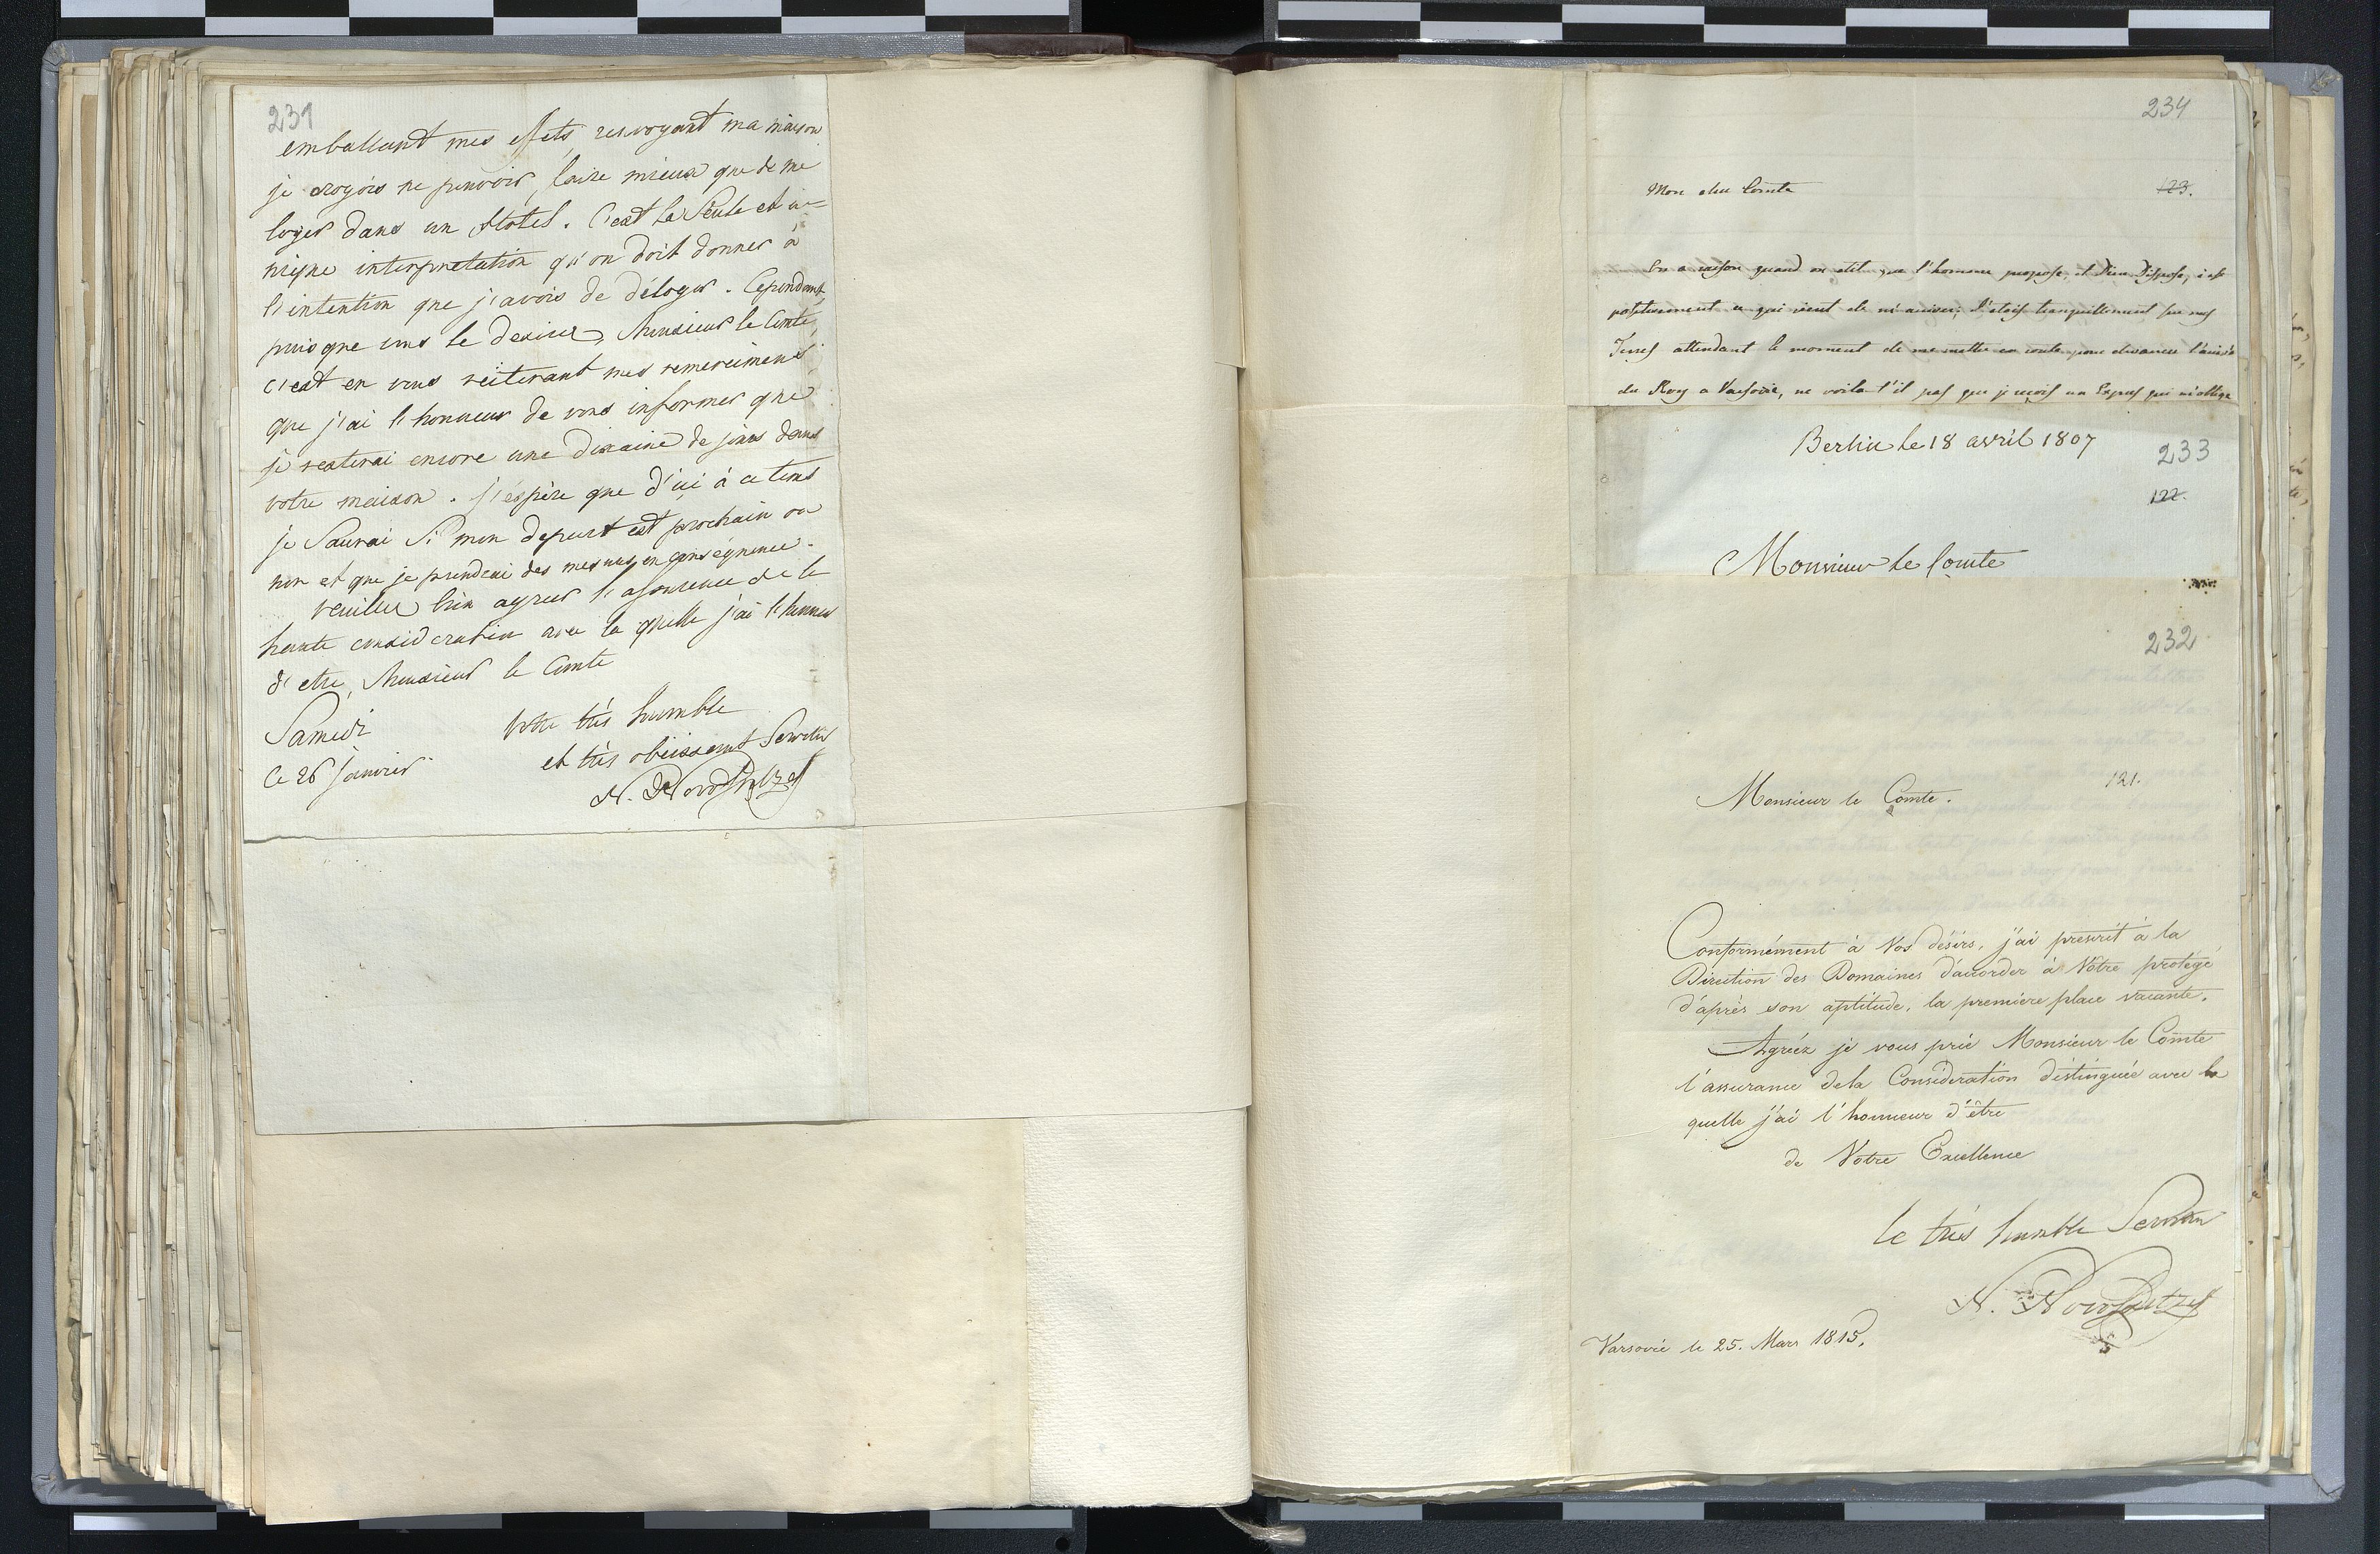 231
emballant mes effets, renvoyant ma maison
je croyois ne pouvoir faire mieux que de me
loger dans un Hotel. C'est la Seule et u-
nique interpretation qu'on doit donner à
l'intention que j'avois de déloger. Cependant,
puisque vous le desirez, Monsieur le Comte,
c'est en vous réiterant mes remercimens
que j'ai l'honneur de vous informer que
je resterai encore une dixaine de jours dans
votre maison. j'éspère que d'ici à ce tems
je Saurai Si mon depart est prochain ou
non et que je prendrai des mesures en conséquence.
veuillez bien agréer l'assurence de la
haute consideration avec la quelle j'ai l'honneur
d'etre, Monsieur le Comte
Votre très humble
et très obéissant Serviteur
N. de Novossiltzoff
Samedi
Ce 26 janvier
234
Mon cher Comte
123.
On a raison quand on dit que l'homme propose, et Dieu Dispose, c'est
positivement ce qui vient de m'arriver; J'étois tranquillement sur mes
Terres attendant le moment de me mettre en route pour devancer l'arrivée
du Roy a Varsovie, ne voila-t'il pas que je reçois un Exprès qui m'oblige
Berlin le 18 avril 1807
233
122.
Monsieur le Comte
232
121.
Monsieur le Comte.
Conformément à Vos désirs, j'ai prescrit à la
Direction des Domaines d'accorder à Vôtre protegé
d'après son aptitude, la première place vacante.
Agréez je vous prie Monsieur le Comte
l'assurance dela Considération distinguée avec la
quelle j'ai l'honneur d'être
de Votre Excellence
le très humble Serviteur
N. Novossiltzoff
Varsovie le 25. Mars 1815.